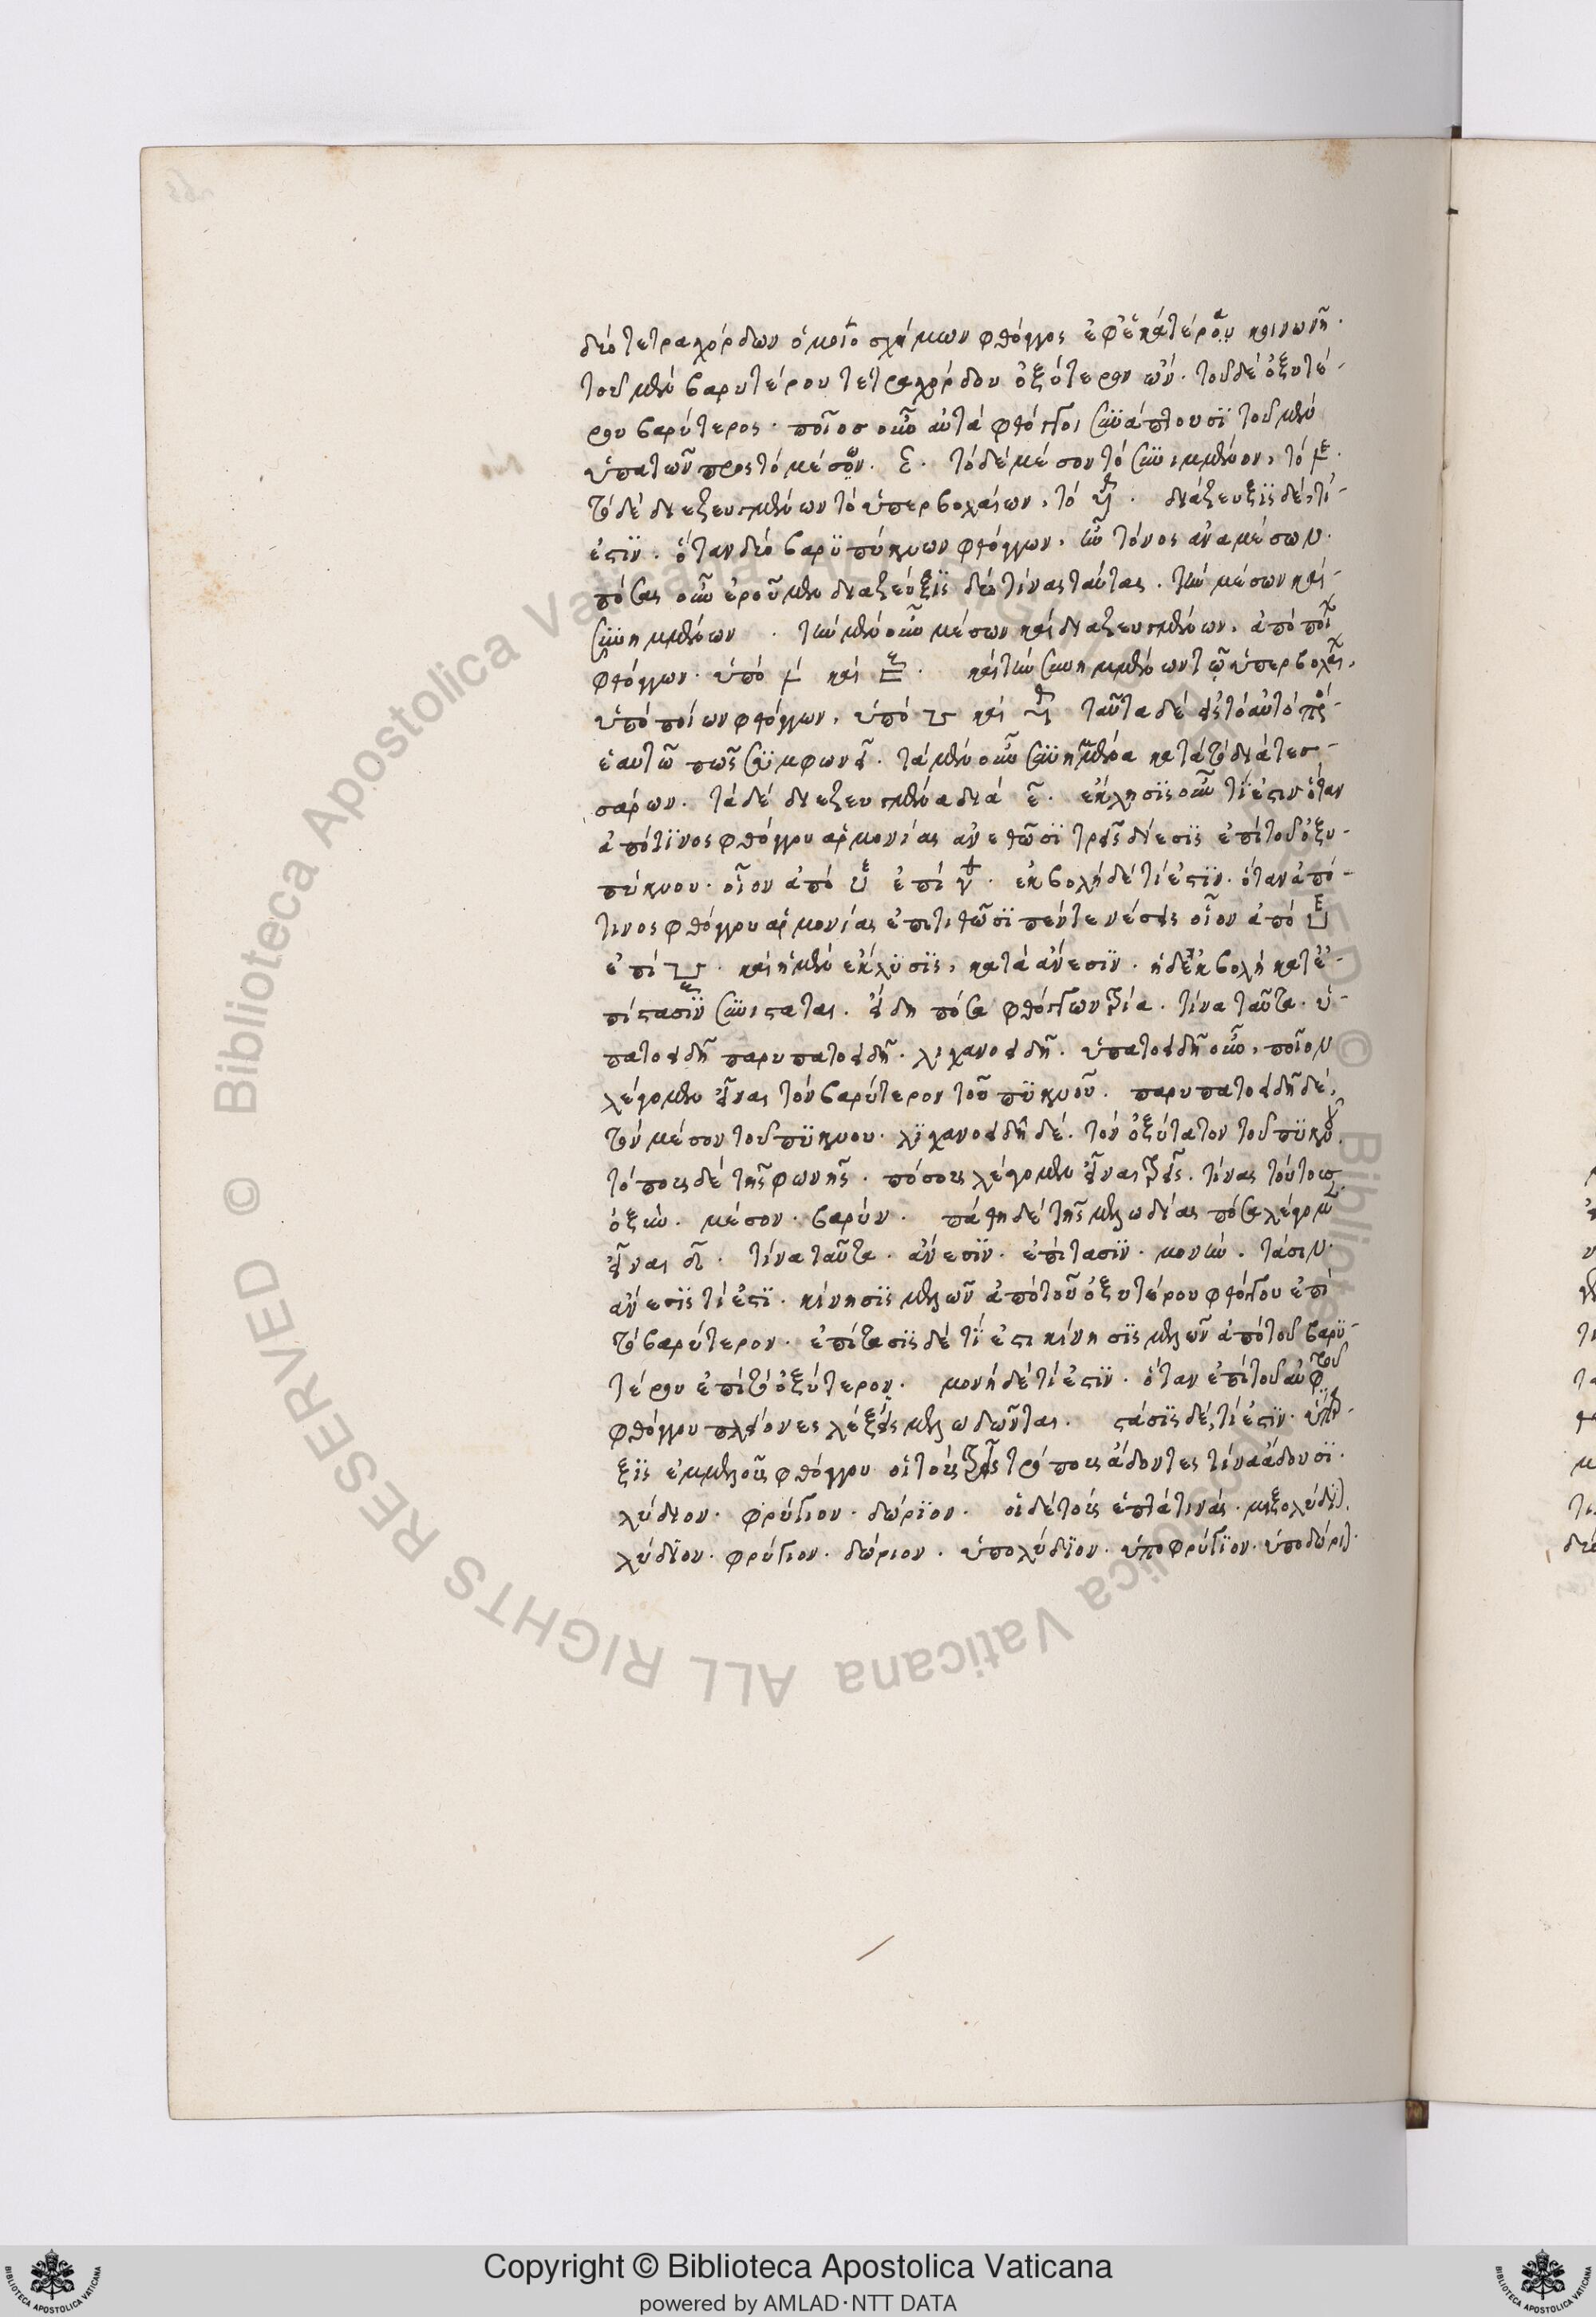 δύο τετραχόρδων ὁμοιοσχήμων φθόγγος ἐφ' ἑκάτερον κοινωνῆ·
τοῦ μὲν βαρυτέρου τετραχόρδου ὀξύτερον ὤν· τοῦ δὲ ὀξυτέ-
ρου βαρύτερος· ποῖος οὖν αὐτὰ φθόγγοι συνάπτουσι τοῦ μὲν
ὑπατῶν πρὸς τὸ μέσον. τὸ δὲ μέσον τὸ συνιμμένον, τὸ
τὸ δὲ διεζευγμένων τὸ ὑπερβολαίων, τὸ διάζευξϊς δέ, τί
ἐστϊν. ὅταν δύο βαρϋπύκνων φθόγγων, ὦ τόνος ἀναμέσων·
πόσας οὖν ἐροῦμεν διαζεύξϊς δύο τίνας ταύτας. τὴν μέσων καὶ
συνημμένων. τὴν μὲν οὖν μέσων καὶ διαζευγμένων, ἀπὸ ποί
φθόγγων. ὑπὸ καὶ καὶ τὴν συνημμένων τῶν ὑπερβολαί,
ὑπὸ ποίων φθόγγων, ὑπὸ καὶ ταῦτα δὲ εἰς τὸ αὐτὸ πρὸς
ἑαυτῶ πῶς συμφωνεῖ. τὰ μὲν οὖν συνημμένα κατὰ τὸ διὰ τεσ-
σάρων. τὰ δὲ διεζευγμένα διὰ ε. ἔκλησϊς οὖν τί ἐστιν ὅταν
ἀπό τϊνος φθόγγου ἁρμονίας ἀνεθῶσϊ τρεῖς διέσϊς ἐπὶ τοῦ ὀξυ-
πύκνου. οἷον ἀπὸ ἐπὶ ἐκβολὴ δὲ τί ἐστϊν. ὅταν ἀπό
τινος φθόγγου ἁρμονίας ἐπιτιθῶσϊ πέντε νέσεις οἷον ἀπὸ
ἐπὶ καὶ ἡ μὲν ἔκλϋσϊς, κατὰ ἄνεσϊν. ἡ δὲ ἐκβολὴ κατ' ἐ-
πίτασϊν συνίσταται. εἴδη πόσα φθόγγων τρία. τίνα ταῦτα. ὑ-
πατοειδῆ παρυπατοειδῆ. λιχανοειδῆ. ὑπατοειδῆ οὖν, ποῖον
λέγομεν εἶναι τὸν βαρύτερον τοῦ πϋκνοῦ. παρυπατοειδῆ δέ,
τὸν μέσον τοῦ πϋκνου. λϊχανοειδῆ δέ. τὸν ὀξύτατον τοῦ πϋκνου.
τόπους δὲ τῆς φωνῆς. πόσους λέγομεν εἶναι τρεῖς. τίνας τούτους
ὀξὺν. μέσον. βαρύν. πάθη δὲ τῆς μελωδίας πόσα λέγομεν
εἶναι δ. τίνα ταῦτα. ἄνεσϊν. ἐπίτασϊν. μονὴν. τάσιν.
ἄνεσϊς τί ἐστϊ. κίνησϊς μελῶν ἀπὸ τοῦ ὀξυτέρου φθόγγου ἐπὶ
τὸ βαρύτερον. ἐπίτασϊς δὲ τί ἐστι κίνησϊς μελῶν ἀπὸ τοῦ βαρϋ-
τέρου ἐπὶ τὸ ὀξύτερον. μονὴ δὲ τί ἐστϊν. ὅταν ἐπὶ τοῦ αὐτοῦ
φθόγγου πλείονες λέξεις μελωδῶνται. στάσϊς δέ, τί ἐστϊν.
ξϊς ἐμμελοῦς φθόγγου οἱ τοὺς τρεῖς τρόπους ἄδοντες τίνα ἄδουσϊ.
λύδιον. φρύγιον. δώρϊον. οἱ δὲ τοὺς ἑπτὰ τινάς. μιξολύδϊον.
λύδϊον. φρύγιον. δώριον. ὑπολύδϊον. ὑποφρύγϊον. ὑποδώριον.
Copyright © Biblioteca Apostolica Vaticana
powered by AMLAD·NTT DATA
© Biblioteca Apostolica Vaticana ALL RIGHTS RESERVED